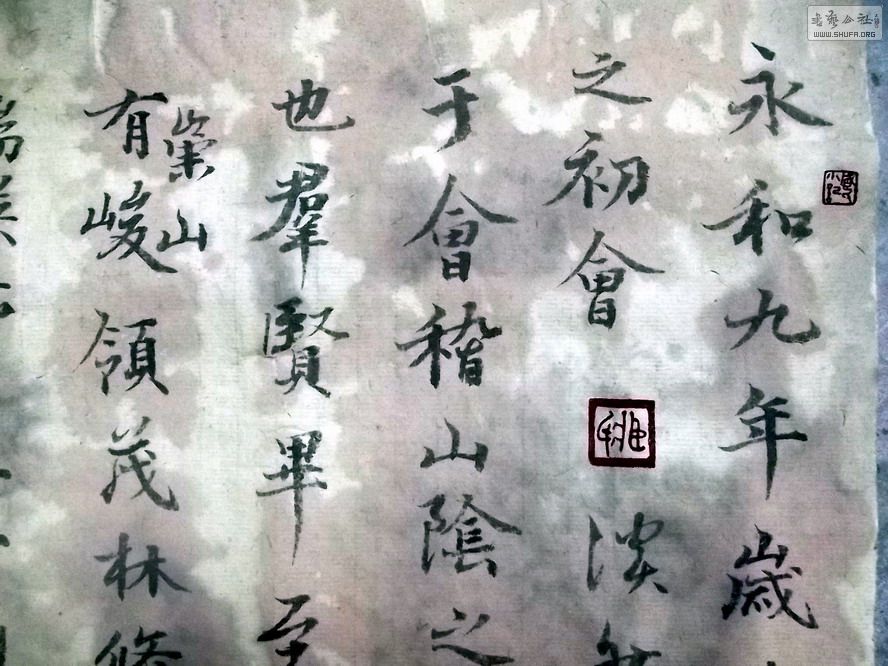 永和九年歲
之初會
于會稽山陰之
也羣賢畢至
崇山
有峻領茂林脩
書藝公社
WWW.SHUFA.ORG